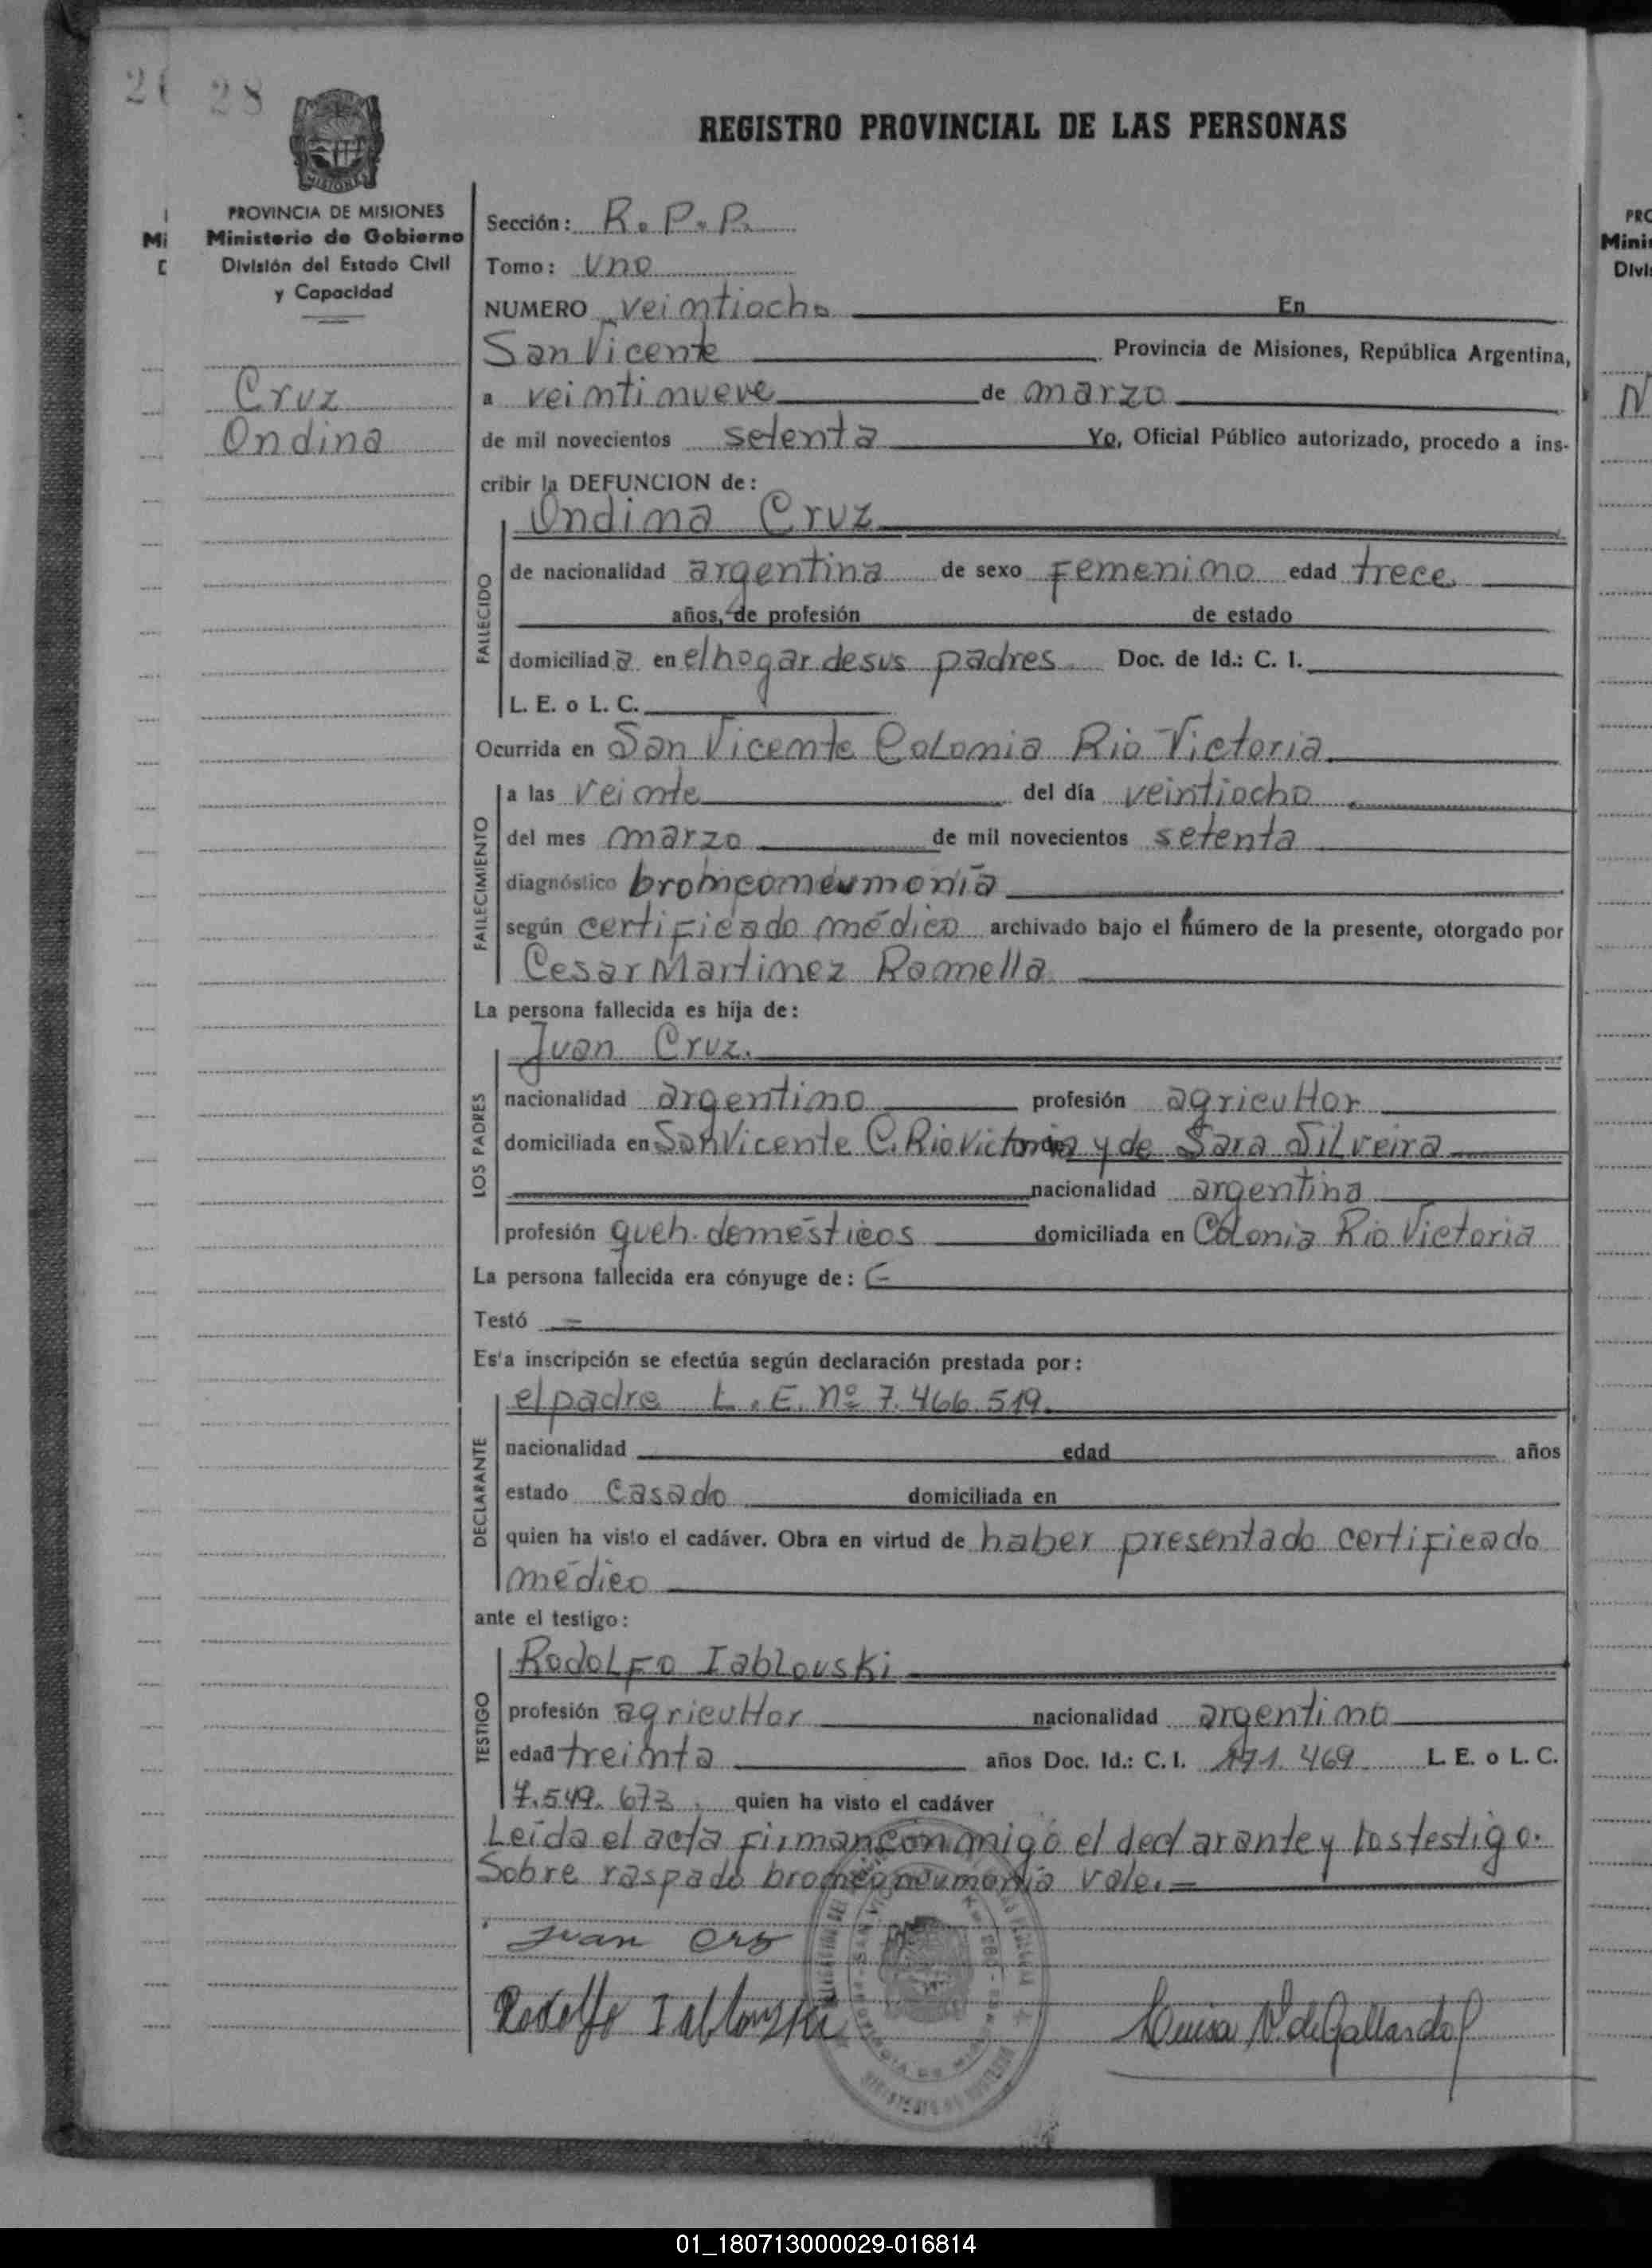 28
MISIONES
PROVINCIA DE MISIONES
Ministerio de Gobierno
División del Estado Civil
y Capacidad
Cruz
Ondina
REGISTRO PROVINCIAL DE LAS PERSONAS
Sección: R. P. P.
Tomo: uno
NUMERO veintiocho En
San Vicente Provincia de Misiones, República Argentina,
a veintinueve de marzo
de mil novecientos setenta Yo, Oficial Público autorizado, procedo a ins-
cribir la DEFUNCION de:
Ondina Cruz
FALLECIDO
de nacionalidad argentina de sexo femenino edad trece
años, de profesión de estado
domiciliada en el hogar de sus padres Doc. de Id.: C. I.
L. E. o L. C.
Ocurrida en San Vicente Colonia Rio Victoria
FALLECIMIENTO
a las veinte del día veintiocho
del mes marzo de mil novecientos setenta
diagnóstico bronconeumonía
según certificado médico archivado bajo el número de la presente, otorgado por
Cesar Martinez Ramella
La persona fallecida es hija de:
Juan Cruz.
LOS PADRES
nacionalidad argentino profesión agricultor
domiciliada en San Vicente C. Rio Victoria y de Sara Silveira
nacionalidad argentina
profesión queh. domésticos domiciliada en Colonia Rio Victoria
La persona fallecida era cónyuge de:
Testó =
Esta inscripción se efectúa según declaración prestada por:
el padre L. E. nº 7.466.519.
DECLARANTE
nacionalidad edad años
estado casado domiciliada en
quien ha visto el cadáver. Obra en virtud de haber presentado certificado
médico
ante el testigo:
Rodolfo Iablouski
TESTIGO
profesión agricultor nacionalidad argentino
edad treinta años Doc. Id.: C. I. 171.469 L. E. o L. C.
7.549.673. quien ha visto el cadáver
Leída el acta firman conmigo el declarante y los testigo.
Sobre raspado bronconeumonía vale.=
Juan Crz
Rodolfo Iablouski
Luisa N. de Gallardo
PRO
Minis
Divi
N
01_180713000029-016814